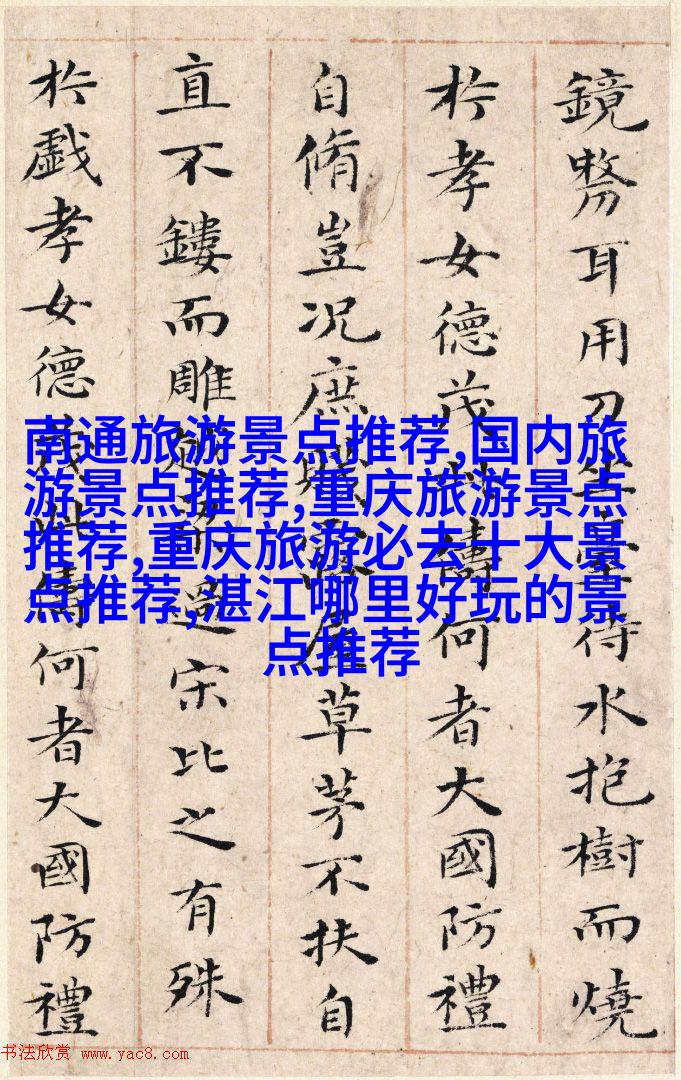 鏡剺耳用刀坐臺待水抱樹而燒
於孝女德茂此儔何者大國防禮
自脩豈况庶賤露屋草茅不扶自
直不鏤而雕越梁過宋比之有殊
於戲孝女德茂此儔何者大國防禮
南通旅游景点推荐,国内旅
游景点推荐,重庆旅游景点
推荐,重庆旅游必去十大景
点推荐,湛江哪里好玩的景
点推荐
书法欣赏 www.yac8.com